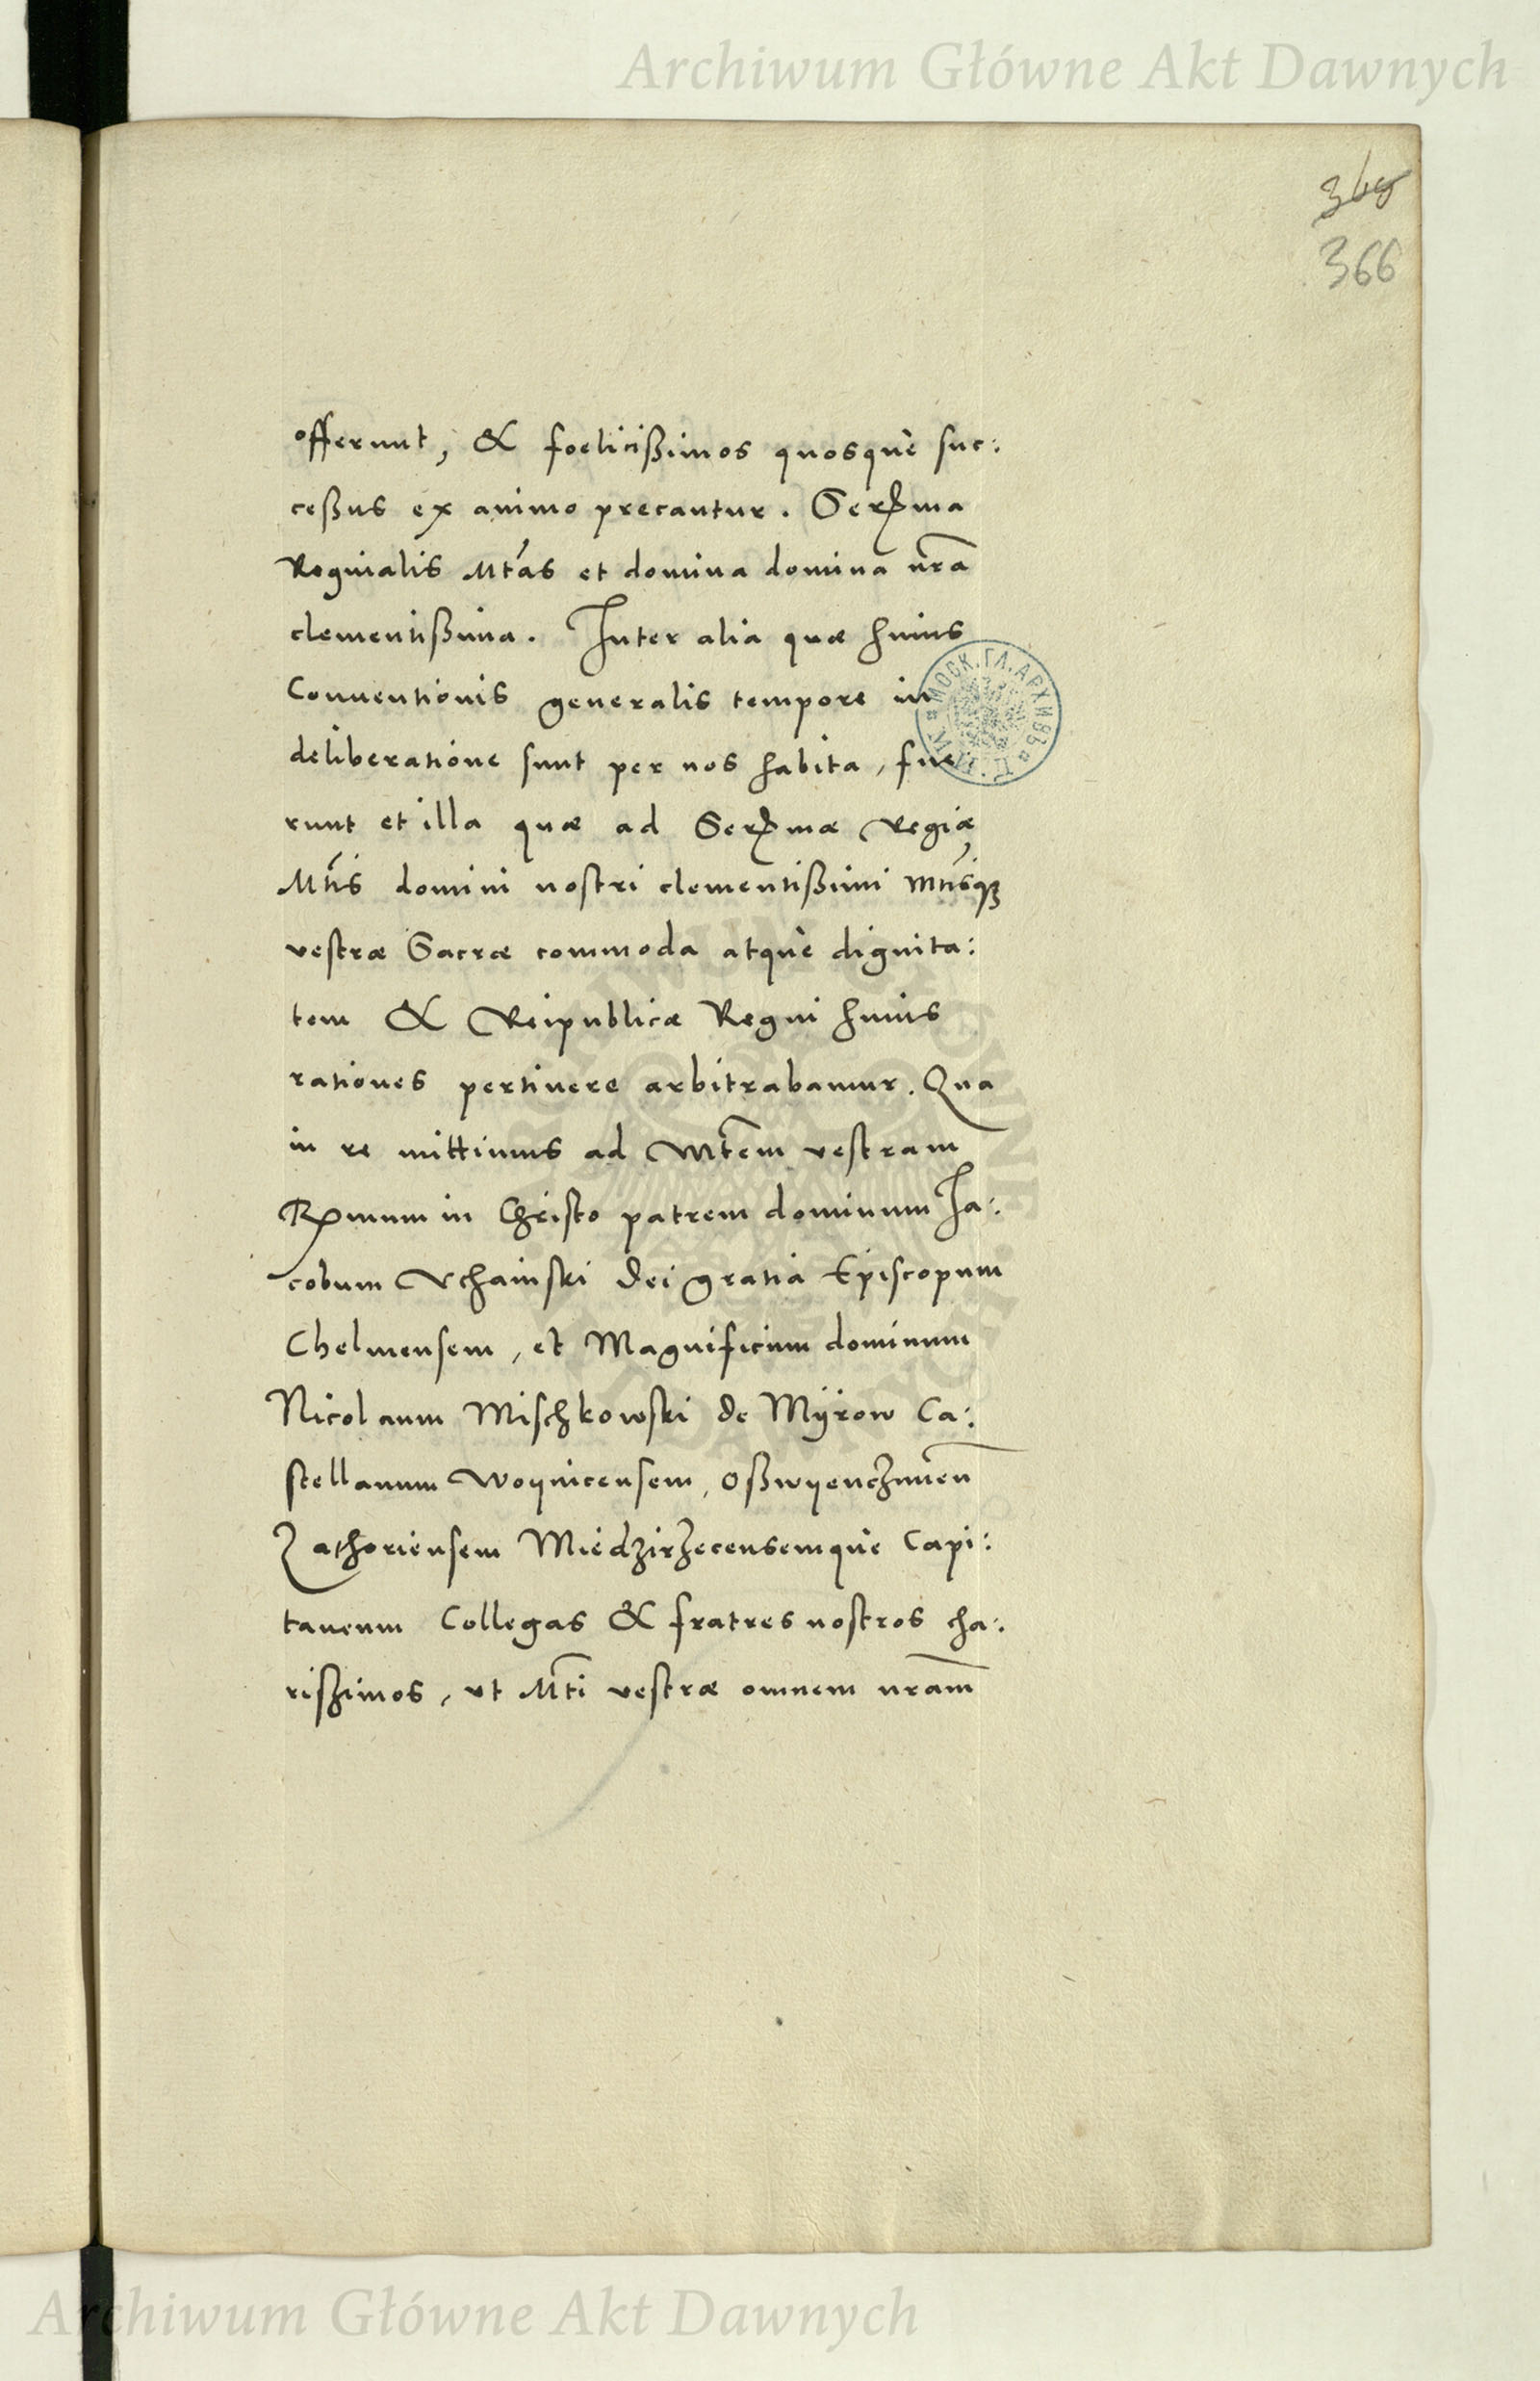 Archiwum Główne Akt Dawnych
366
offerunt, & foelicißimos quosque suc:
ceßus ex animo precantur. Serma
Reginalis Mtas et domina domina nra
clementißima. Inter alia quæ huius
Conuentionis generalis tempore in
deliberatione sunt per nos habita, fue
runt et illa quæ ad Sermæ Regiæ
Mtis domini nostri clementißimi Mtisqꝫ
vestræ Sacræ commoda atque dignita:
tem & Reipublicæ Regni huius
rationes pertinere arbitrabamur. Qua
in re mittimus ad Mtem vestram
Rmum in Christo patrem dominum Ja:
cobum Vchainski Dei gratia Episcopum
Chelmensem, et Magnificum dominum
Nicolaum Mischkowski de Mÿrow Ca:
stellanum Woÿnicensem, Oßwÿenczimen
Zathoriensem Miedzirzecensemque Capi:
taneum Collegas & fratres nostros cha:
rißimos, vt Mti vestræ omnem nram
МОСК. ГЛ. АРХИВЪ
Archiwum Główne Akt Dawnych